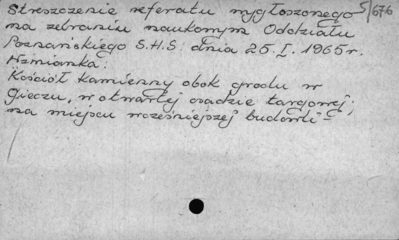 Streszczenie referatu wygłoszonego 5/676
na zebraniu naukowym Oddziału
Poznańskiego S.H.S. dnia 25.I.1965r.
Wzmianka:
Kościół kamienny obok grodu w
Gieczu, w otwartej osadzie targowej,
na miejscu wcześniejszej budowli -